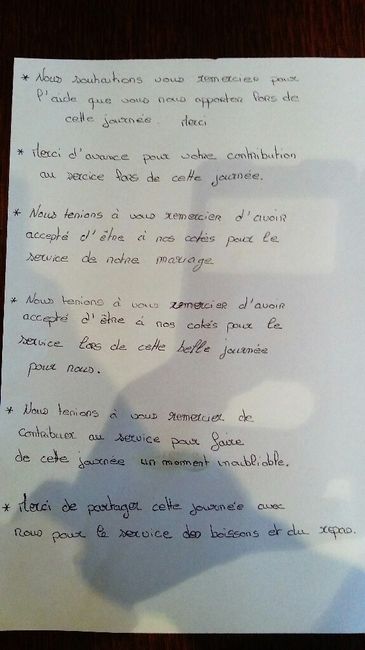 * Nous souhaitions vous remercier pour
l'aide que vous nous apporter lors de
cette journée. Merci
* Merci d'avance pour votre contribution
au service lors de cette journée.
* Nous tenions à vous remercier d'avoir
accepté d'être à nos cotés pour le
service de notre mariage
* Nous tenions à vous remercier d'avoir
accepté d'être à nos cotés pour le
service lors de cette belle journée
pour nous.
* Nous tenions à vous remercier de
contribuer au service pour faire
de cette journée un moment inoubliable.
* Merci de partager cette journée avec
nous pour le service des boissons et du repas.